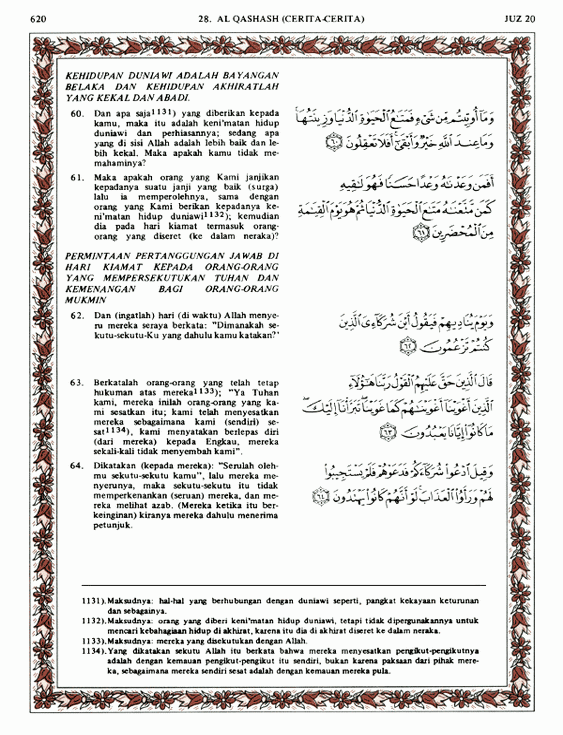 620 28. AL QASHASH (CERITA-CERITA) JUZ 20
KEHIDUPAN DUNIAWI ADALAH BAYANGAN
BELAKA DAN KEHIDUPAN AKHIRATLAH
YANG KEKAL DAN ABADI.
60. Dan apa saja1131) yang diberikan kepada
kamu, maka itu adalah keni'matan hidup
duniawi dan perhiasannya; sedang apa
yang di sisi Allah adalah lebih baik dan le-
bih kekal. Maka apakah kamu tidak me-
mahaminya?
وَمَآ أُوتِيتُم مِّن شَىْءٍ فَمَتَـٰعُ ٱلْحَيَوٰةِ ٱلدُّنْيَا وَزِينَتُهَا
وَمَا عِندَ ٱللَّهِ خَيْرٌ وَأَبْقَىٰٓ أَفَلَا تَعْقِلُونَ ٦٠
61. Maka apakah orang yang Kami janjikan
kepadanya suatu janji yang baik (surga)
lalu ia memperolehnya, sama dengan
orang yang Kami berikan kepadanya ke-
ni'matan hidup duniawi1132); kemudian
dia pada hari kiamat termasuk orang-
orang yang diseret (ke dalam neraka)?
أَفَمَن وَعَدْنَـٰهُ وَعْدًا حَسَنًا فَهُوَ لَـٰقِيهِ
كَمَن مَّتَّعْنَـٰهُ مَتَـٰعَ ٱلْحَيَوٰةِ ٱلدُّنْيَا ثُمَّ هُوَ يَوْمَ ٱلْقِيَـٰمَةِ
مِنَ ٱلْمُحْضَرِينَ ٦١
PERMINTAAN PERTANGGUNGAN JAWAB DI
HARI KIAMAT KEPADA ORANG-ORANG
YANG MEMPERSEKUTUKAN TUHAN DAN
KEMENANGAN BAGI ORANG-ORANG
MUKMIN
62. Dan (ingatlah) hari (di waktu) Allah menye-
ru mereka seraya berkata: "Dimanakah se-
kutu-sekutu-Ku yang dahulu kamu katakan?"
وَيَوْمَ يُنَادِيهِمْ فَيَقُولُ أَيْنَ شُرَكَآءِىَ ٱلَّذِينَ
كُنتُمْ تَزْعُمُونَ ٦٢
63. Berkatalah orang-orang yang telah tetap
hukuman atas mereka1133); "Ya Tuhan
kami, mereka inilah orang-orang yang ka-
mi sesatkan itu; kami telah menyesatkan
mereka sebagaimana kami (sendiri) se-
sat1134), kami menyatakan berlepas diri
(dari mereka) kepada Engkau, mereka
sekali-kali tidak menyembah kami".
قَالَ ٱلَّذِينَ حَقَّ عَلَيْهِمُ ٱلْقَوْلُ رَبَّنَا هَـٰٓؤُلَآءِ
ٱلَّذِينَ أَغْوَيْنَآ أَغْوَيْنَـٰهُمْ كَمَا غَوَيْنَا تَبَرَّأْنَآ إِلَيْكَ
مَا كَانُوٓا۟ إِيَّانَا يَعْبُدُونَ ٦٣
64. Dikatakan (kepada mereka): "Serulah oleh-
mu sekutu-sekutu kamu", lalu mereka me-
nyerunya, maka sekutu-sekutu itu tidak
memperkenankan (seruan) mereka, dan me-
reka melihat azab. (Mereka ketika itu ber-
keinginan) kiranya mereka dahulu menerima
petunjuk.
وَقِيلَ ٱدْعُوا۟ شُرَكَآءَكُمْ فَدَعَوْهُمْ فَلَمْ يَسْتَجِيبُوا۟
لَهُمْ وَرَأَوُا۟ ٱلْعَذَابَ لَوْ أَنَّهُمْ كَانُوا۟ يَهْتَدُونَ ٦٤
1131).Maksudnya: hal-hal yang berhubungan dengan duniawi seperti, pangkat kekayaan keturunan
dan sebagainya.
1132).Maksudnya: orang yang diberi keni'matan hidup duniawi, tetapi tidak dipergunakannya untuk
mencari kebahagiaan hidup di akhirat, karena itu dia di akhirat diseret ke dalam neraka.
1133).Maksudnya: mereka yang disekutukan dengan Allah.
1134).Yang dikatakan sekutu Allah itu berkata bahwa mereka menyesatkan pengikut-pengikutnya
adalah dengan kemauan pengikut-pengikut itu sendiri, bukan karena paksaan dari pihak mere-
ka, sebagaimana mereka sendiri sesat adalah dengan kemauan mereka pula.